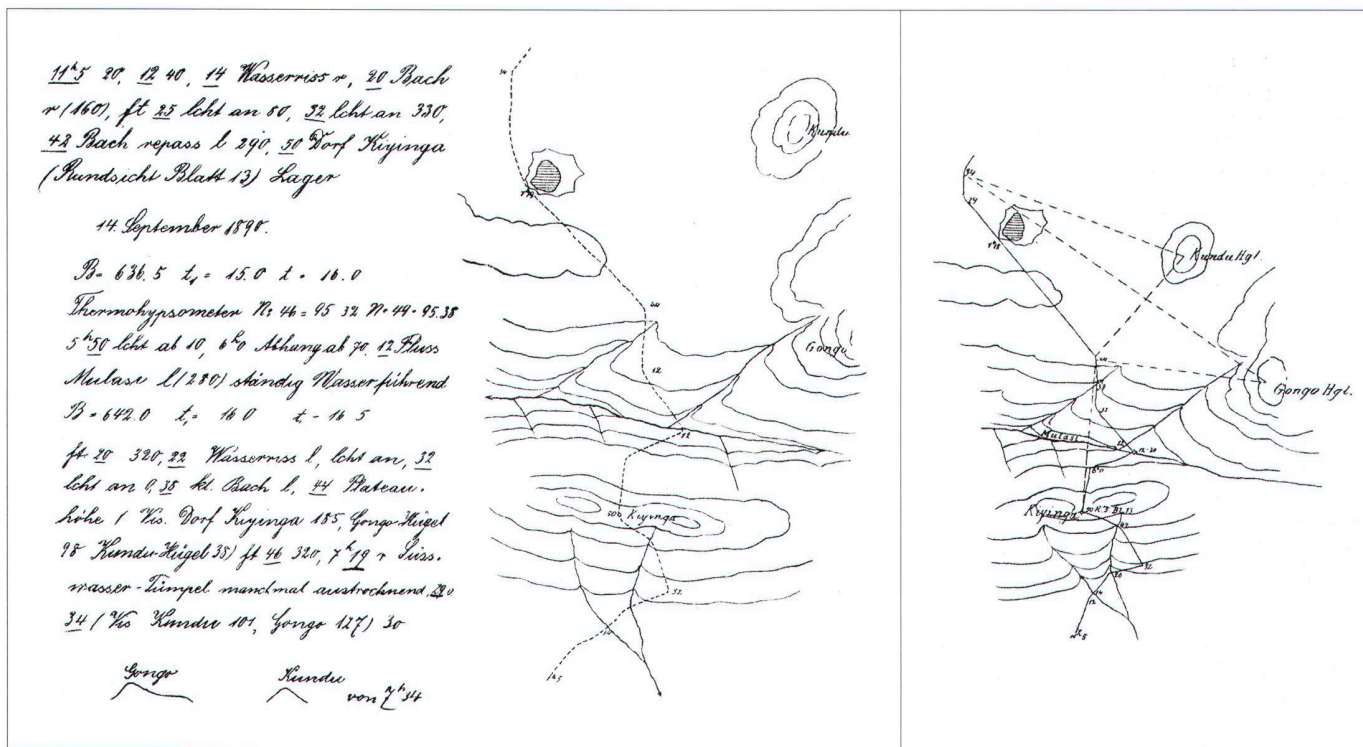 11ʰ5 20, 12 40, 14 Wasserriss r, 20 Bach
r (160), ft 25 lcht an 80, 32 lcht an 330,
42 Bach repass l 290, 50 Dorf Kiyinga
(Rundsicht Blatt 13) Lager
14. September 1890.
B = 636.5 t, = 15.0 t = 16.0
Thermohypsometer Nr 46 = 95 32 Nr 49 = 95.38
5ʰ50 lcht ab 10, 6ʰ0 Abhang ab 70, 12 Fluss
Mulasi l (280) ständig Wasserführend
B = 642.0 t, = 16 0 t = 16 5
ft 20 320, 22 Wasserriss l, lcht an, 32
lcht an 0, 38 kl. Bach l, 44 Plateau-
höhe (Vis. Dorf Kiyinga 185, Gongo Hügel
98 Kundu-Hügel 38) ft 46 320, 7ʰ19 r Süss-
wasser-Tümpel manchmal austrocknend,
34 (Vis Kundu 101, Gongo 127) 30
Gongo Kundu
von 7ʰ34
34
Kundu
44
Gongo
12
12
50 Kiyinga
32
14
11ʰ5
34
24
Kundu Hgl.
Gongo Hgl.
Mulasi
12-20
Kiyinga
42
32
20
14
12